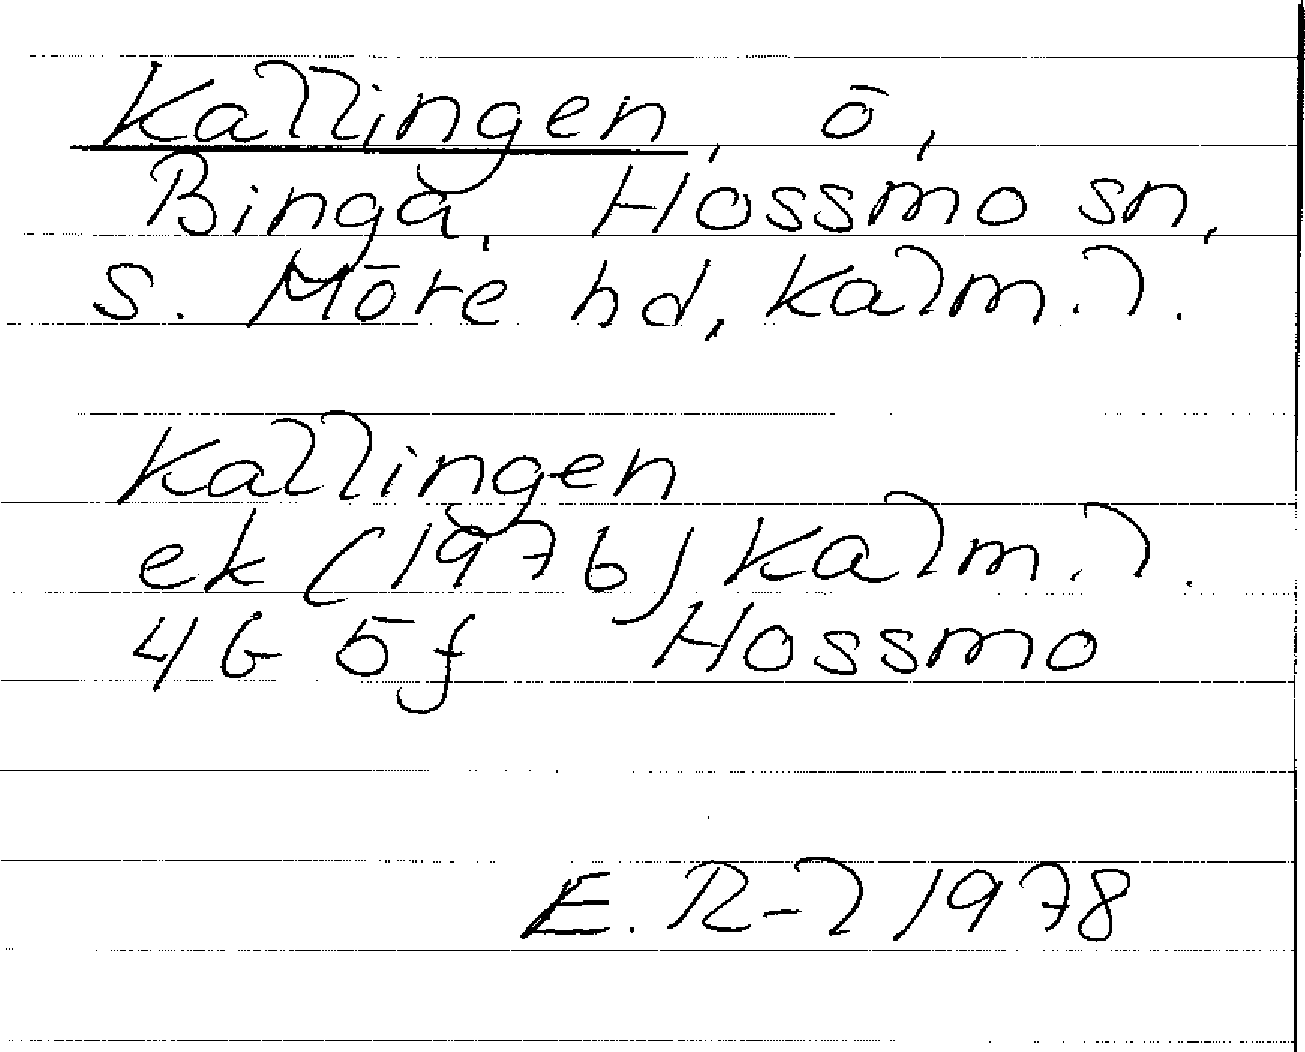 Kallingen, ö,
Binga, Hossmo sn,
S. Möre hd, Kalm. l.
Kallingen
ek (1976) Kalm. l.
4G 5f Hossmo
E. R-l 1978